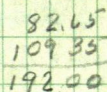 82.65
109 35
192 00